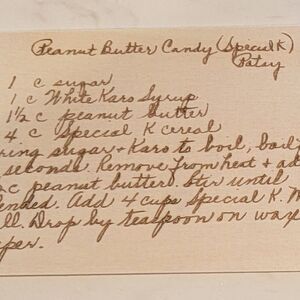 Peanut Butter Candy (Special K)
Patsy
1 c sugar
1 c White Karo Syrup
1½ c peanut butter
4 c Special K cereal
ring sugar + Karo to boil, boil
seconds. Remove from heat + ad
c peanut butter. Stir until
ended. Add 4 cups Special K. M
ll. Drop by teaspoon on wax
per.